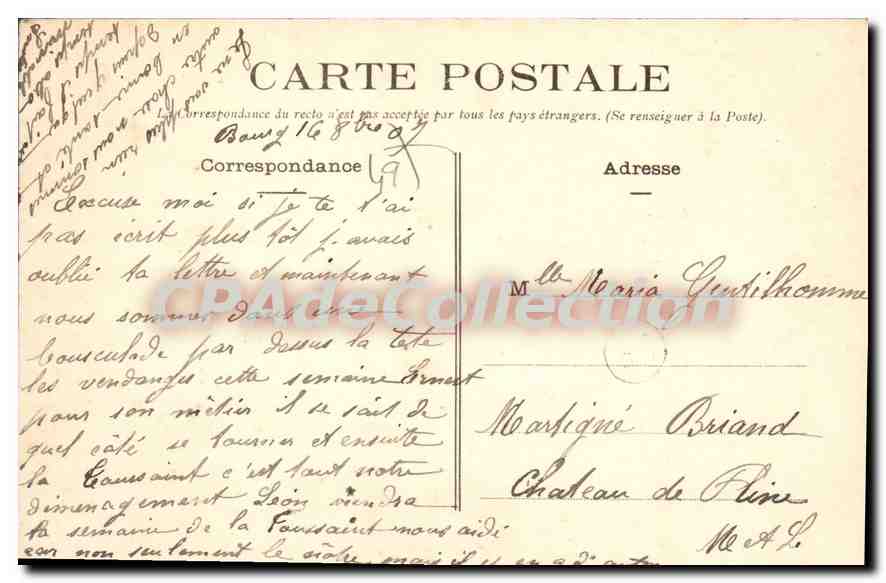 CARTE POSTALE
La Correspondance du recto n'est pas acceptée par tous les pays étrangers. (Se renseigner à la Poste).
Bourg 16 8bre 07
Correspondance
49
Excuse moi si je te t'ai
pas écrit plus tôt j'avais
oublié ta lettre et maintenant
nous sommes dans une
bousculade par dessus la tete
les vendanges cette semaine Ernest
pour son métier il se sait de
quel côté se tourner et ensuite
la Toussaint c'est tout notre
diménagement Léon viendra
la semaine de la Toussaint nous aidé
car non seulement le nôtre mais il y en a d'autre
Adresse
Mlle Maria Gentilhomme
Martigné Briand
Chateau de Fline
M et L
CPAdeCollection